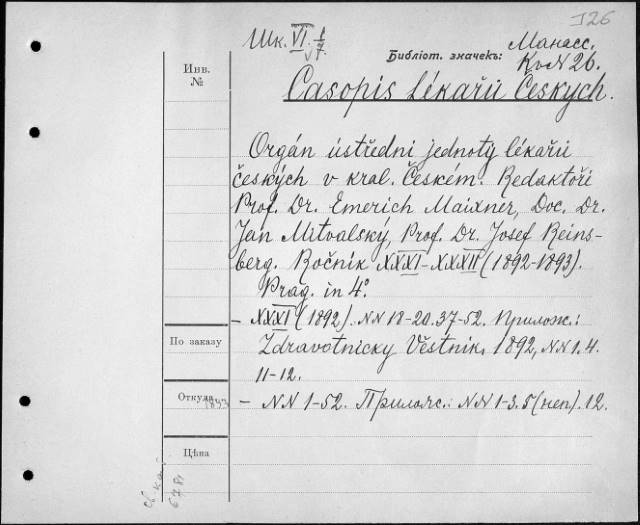 I26
Шк. VI 1/7
Библіот. значекъ: Манасс.
Kv N 26.
Инв.
№
Casopis Lékařů Českých.
Orgán ústředni jednoty lékařů
českých v kral. Českém. Redaktoři
Prof. Dr. Emerich Maixner, Doc. Dr.
Jan Mitvalský, Prof. Dr. Josef Reins-
berg. Ročnik XXXI-XXXII (1892-1893).
Prag. in 4º.
— XXXI (1892). NN 18-20.37-52. Прилож.:
Zdravotnicky Věstnik. 1892, NN 1.4.
11-12.
По заказу
Откуда
1893 — NN 1-52. Прилож.: NN 1-3.5 (неп). 12.
Цѣна
6781